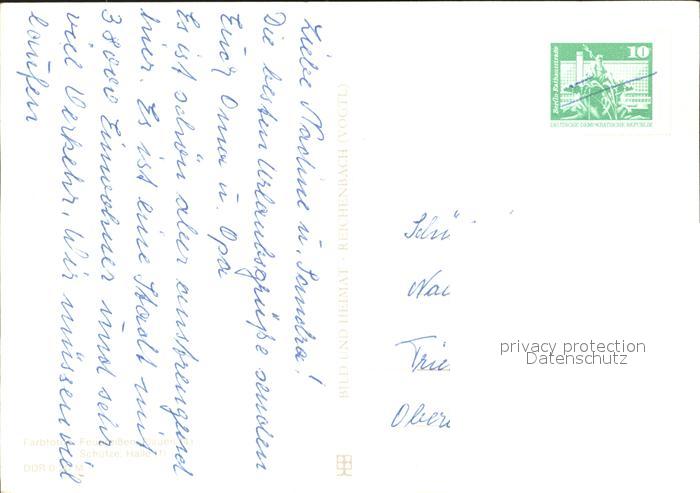 Liebe Nadine u. Sandra!
Die besten Urlaubsgrüße senden
Euch Oma u. Opa
Es ist schön aber anstrengend
hier. Es ist eine Stadt mit
38000 Einwohner und sehr
viel Verkehr. Wir müssen viel
laufen
BILD UND HEIMAT · REICHENBACH (VOGTL)
Farbfotos:
Schütze, Halle (1)
DDR
10
Berlin-Rathausstraße
DEUTSCHE DEMOKRATISCHE REPUBLIK
Schü
Nau
Trie
Ober
privacy protection
Datenschutz